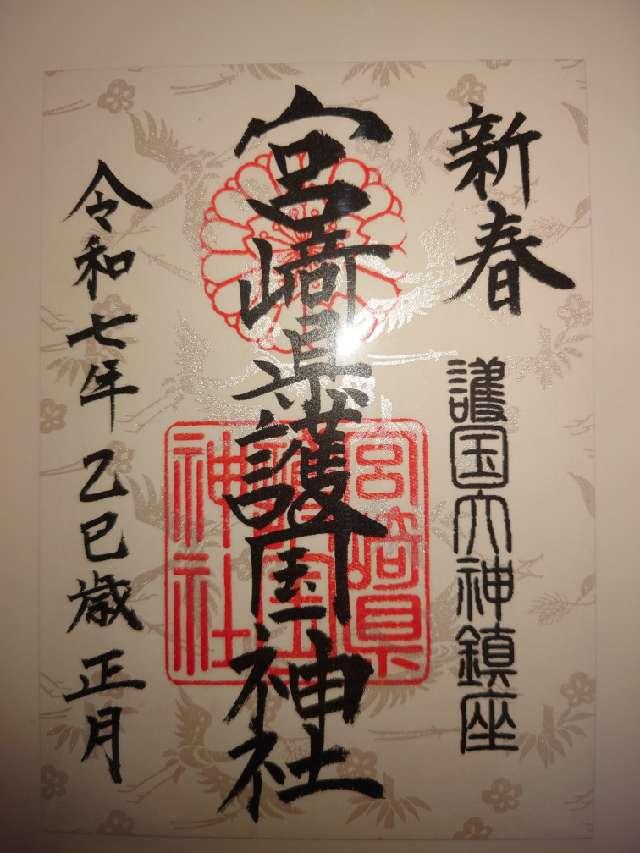 新春
護国大神鎮座
宮崎県護国神社
宮崎県
護国
神社
令和七年乙巳歳正月